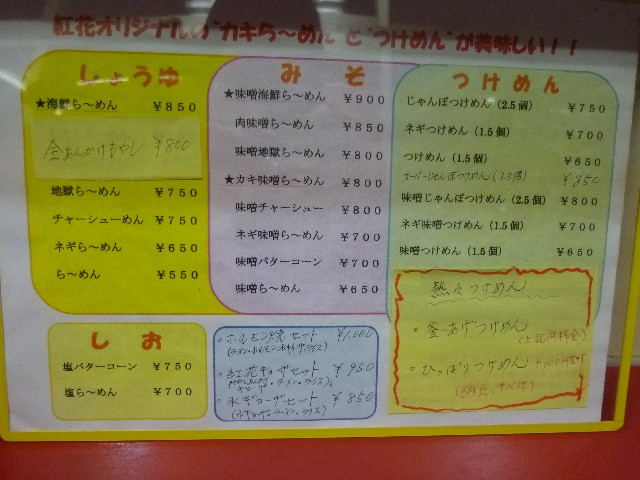 紅花オリジナルの"カキら～めん"と"つけめん"が美味しい！！
しょうゆ
★海鮮ら～めん ￥８５０
あんかけもやし ￥800
地獄ら～めん ￥７５０
チャーシューめん ￥７５０
ネギら～めん ￥６５０
ら～めん ￥５５０
みそ
★味噌海鮮ら～めん ￥９００
肉味噌ら～めん ￥８５０
味噌地獄ら～めん ￥８００
★カキ味噌ら～めん ￥８００
味噌チャーシュー ￥８００
ネギ味噌ら～めん ￥７００
味噌バターコーン ￥７００
味噌ら～めん ￥６５０
つけめん
じゃんぼつけめん（2.5個） ￥７５０
ネギつけめん（1.5個） ￥７００
つけめん（1.5個） ￥６５０
スーパーじゃんぼつけめん（3.5個） ￥850
味噌じゃんぼつけめん（2.5個） ￥８００
ネギ味噌つけめん（1.5個） ￥７００
味噌つけめん（1.5個） ￥６５０
熱々つけめん
・釜あげつけめん
（上記同料金）
・ひっぱりつけめん ＋100円
（納豆、サバ付）
しお
塩バターコーン ￥７５０
塩ら～めん ￥７００
・ホルモン焼セット ￥1,000
・紅花ギョーザセット ￥950
・水ギョーザセット ￥850
（水ギョーザ・ラーメン・ライス）